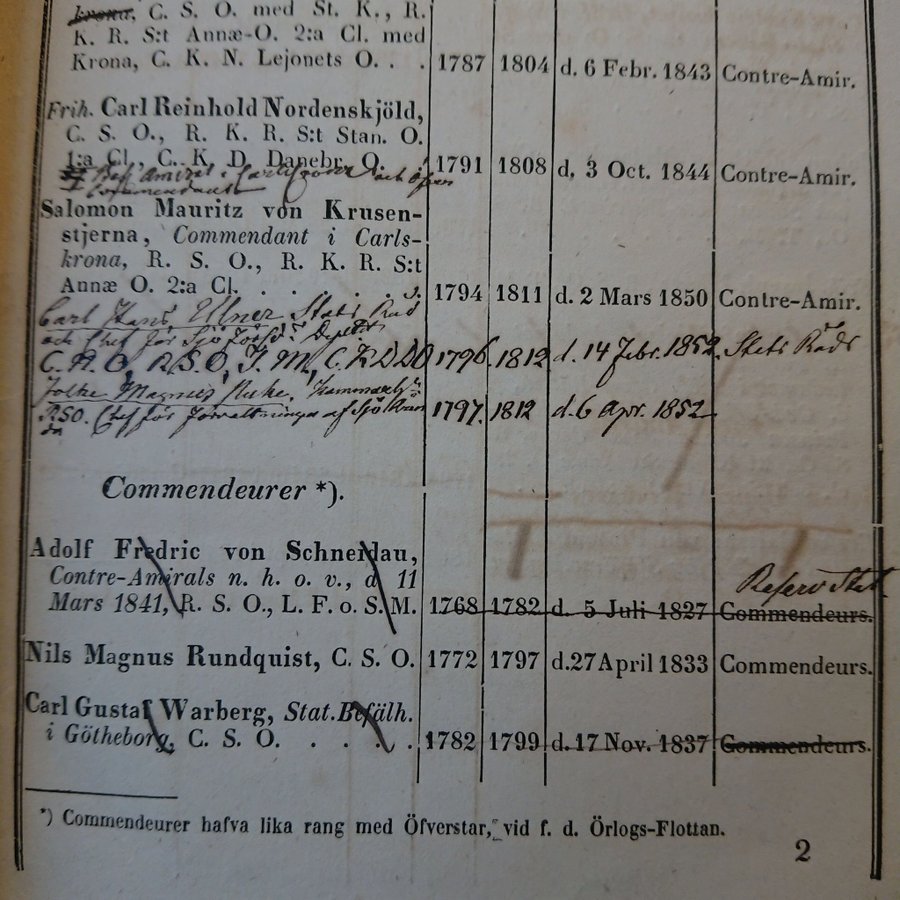 krona, C. S. O. med St. K., R.
K. R. S:t Annæ-O. 2:a Cl. med
Krona, C. K. N. Lejonets O. . . 1787 1804 d. 6 Febr. 1843 Contre-Amir.
Frih. Carl Reinhold Nordenskjöld,
C. S. O., R. K. R. S:t Stan. O.
1:a Cl., C. K. D. Danebr. O. . 1791 1808 d. 3 Oct. 1844 Contre-Amir.
Bef. Amiral i Carlscrona och
Commendant
Salomon Mauritz von Krusen-
stjerna, Commendant i Carls-
krona, R. S. O., R. K. R. S:t
Annæ O. 2:a Cl. . . . . . . 1794 1811 d. 2 Mars 1850 Contre-Amir.
Carl Hans Ullner Stats Råd
och Chef för Sjö Förs.
C. R. O, R. S. O, F. M, C. K D D O 1796. 1812 d. 14 Febr. 1852. Stats Råd
Magnus
RSO. Chef för Förvaltningen af Sjö 1797. 1812 d. 6 Apr. 1852
Commendeurer *).
Adolf Fredric von Schneidau,
Contre-Amirals n. h. o. v., d. 11 Reserv Stat.
Mars 1841, R. S. O., L. F. o. S. M. 1768 1782 d. 5 Juli 1827 Commendeurs.
Nils Magnus Rundquist, C. S. O. 1772 1797 d. 27 April 1833 Commendeurs.
Carl Gustaf Warberg, Stat. Befälh.
i Götheborg, C. S. O. . . . . . 1782 1799 d. 17 Nov. 1837 Commendeurs.
*) Commendeurer hafva lika rang med Öfverstar, vid f. d. Örlogs-Flottan.
2